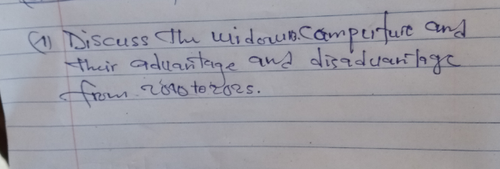 (1) Discuss the widows computure and
their advantage and disadvantage
from 2010 to 2025.